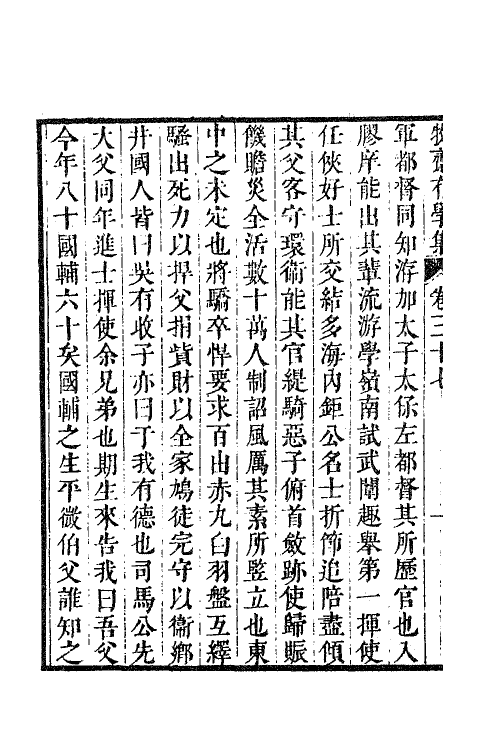 牧齋有學集 卷三十七
軍都督同知㳺加太子太保左都督其所歷官也入
膠庠能出其輩流游學嶺南試武闈趣舉第一揮使
任俠好士所交結多海內鉅公名士折節追陪盡傾
其父客守環衞能其官緹騎惡子俯首斂跡使歸賑
饑贍災全活數十萬人制詔風厲其素所豎立也東
中之未定也將驕卒悍要求百出赤九白羽盤互繹
騷出死力以捍父捐貲財以全家鳩徒完守以衞鄉
井國人皆曰吳有收子亦曰于我有德也司馬公先
大父同年進士揮使余兄弟也期生來告我曰吾父
今年八十國輔六十矣國輔之生平微伯父誰知之